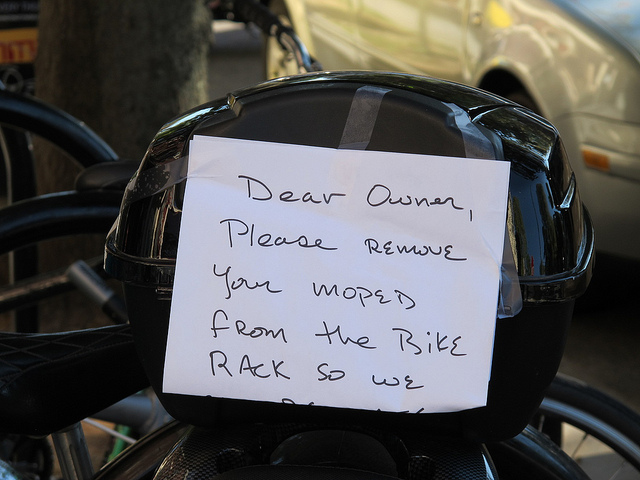 Dear Owner,
Please REMOVE
your MOPED
FROM the BIKE
RACK SO WE